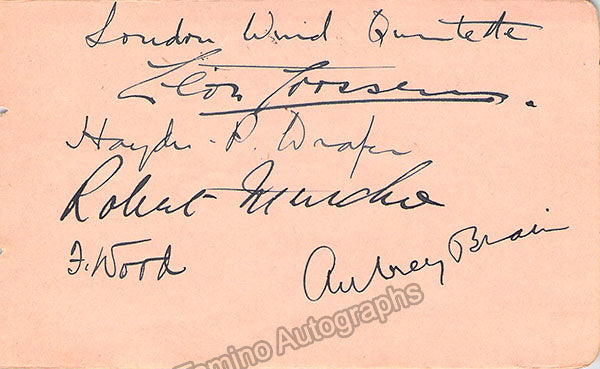 London Wind Quintette
Léon Goossens.
Haydn P. Draper
Robert Murchie
F. Wood
Aubrey Brain
Tamino Autographs